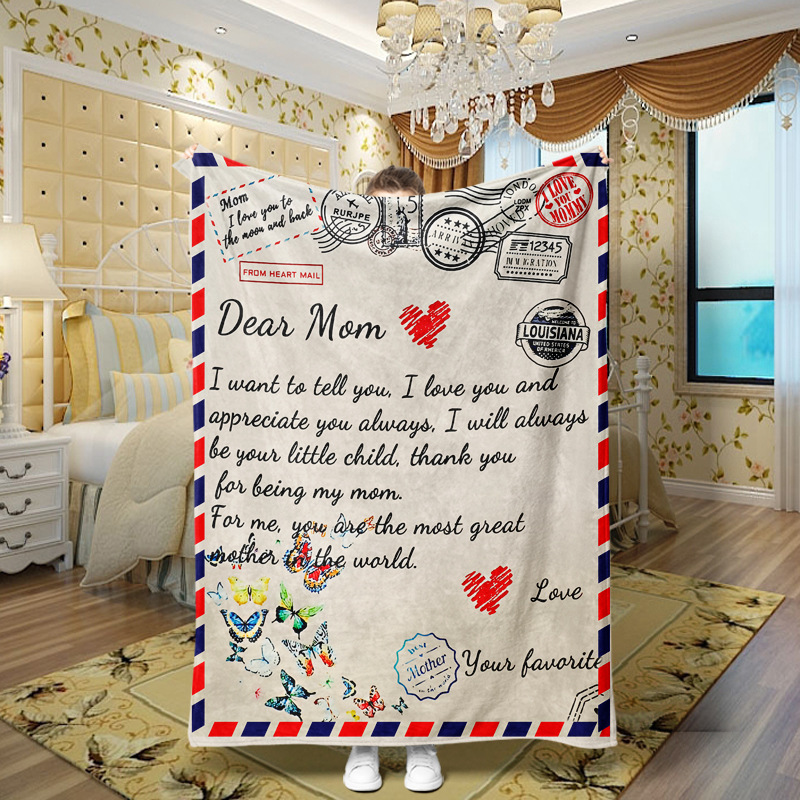 Mom
I love you to
the moon and back
RURJPE
LONDON
LODM
ZPX
I LOVE
YOU
MOMMY
ARRIV
12345
IMMIGRATION
FROM HEART MAIL
Dear Mom
WELCOME TO
LOUISIANA
UNITED STATES
OF AMERICA
I want to tell you, I love you and
appreciate you always, I will always
be your little child, thank you
for being my mom.
For me, you are the most great
mother in the world.
Love
BEST
Mother
in the world
Your favorite